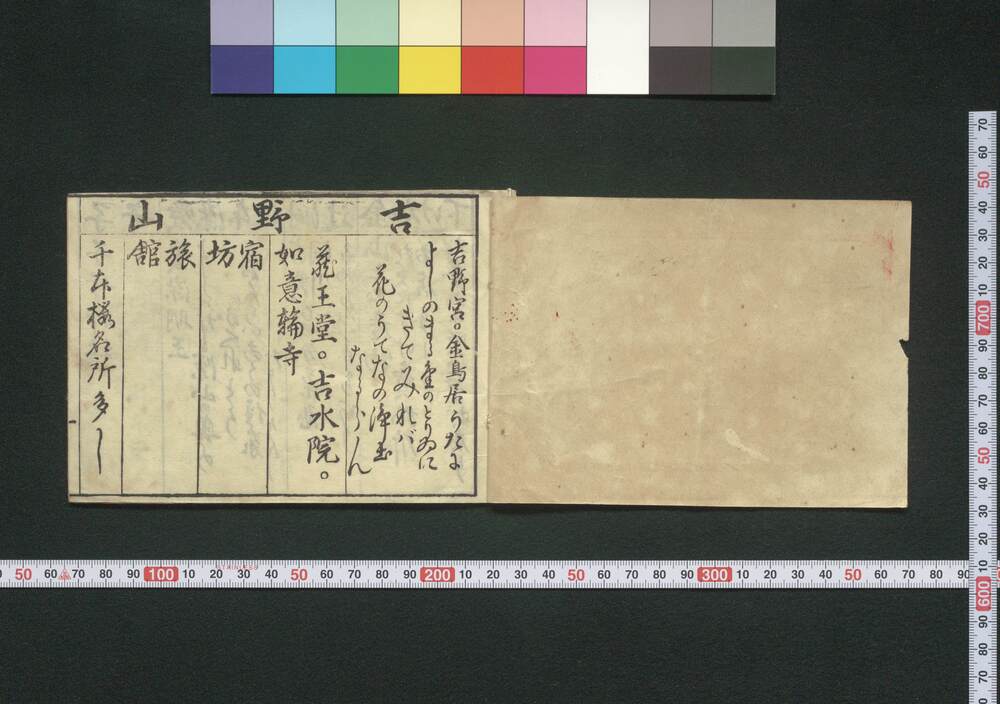 吉野山
吉野宮。金鳥居うたに
よしのまる堂のとりゐに
きてみれバ
花のうてなの浄土
ならん
蔵王堂。吉水院。
如意輪寺
宿坊
旅館
千本桜名所多し
50 60 70 80 90 100 10 20 30 40 50 60 70 80 90 200 10 20 30 40 50 60 70 80 90 300 10 20 30 40 50 60 70 80 90
70 60 50 40 30 20 10 700 90 80 70 60 50 40 30 20 10 600 90 80 70